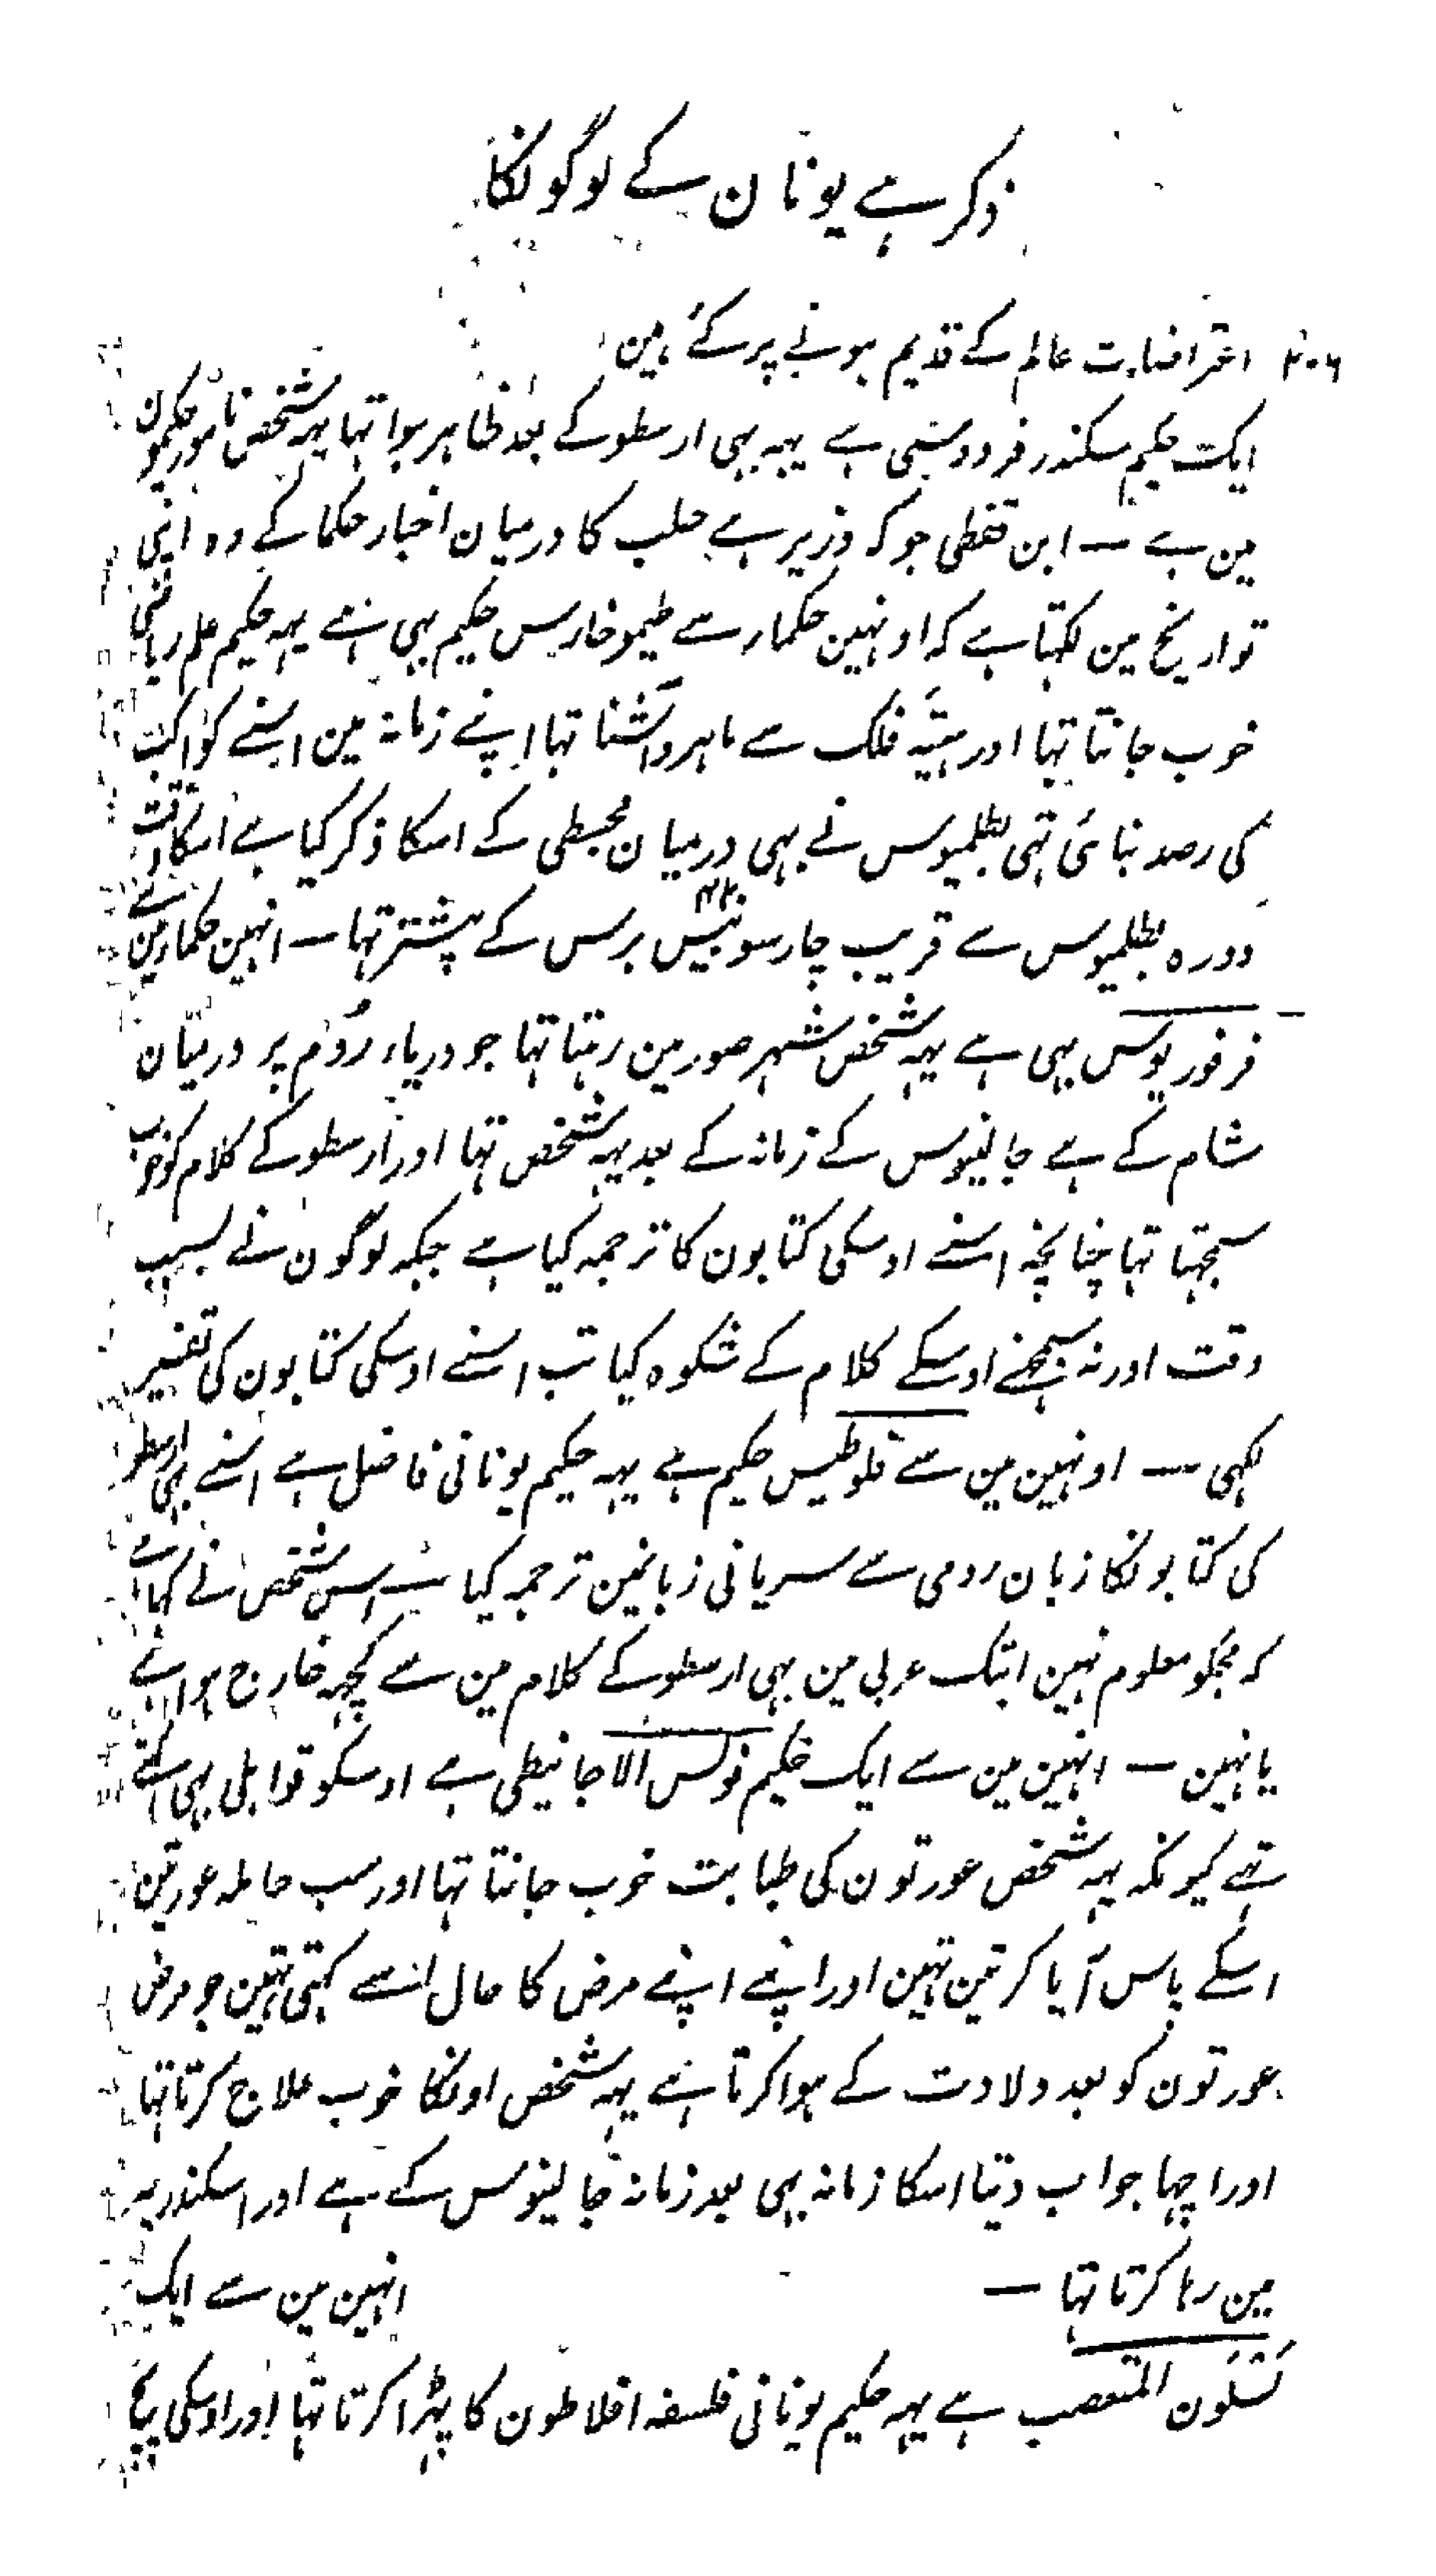 ذکر ہے یونان کے لوگونکا
۴۰۶ اعتراضات عالم کے قدیم ہونے پر کئے ہین
ایک حکیم سکندر فردوسی ہے یہہ بہی ارسطو کے بعد ظاہر ہوا تہا یہہ شخص نامور حکیمون
مین ہے — ابن قفطی جو کہ وزیر ہے حلب کا درمیان اخبار حکما کے وہ اپنی
تواریخ مین لکہتا ہے کہ اونہین حکمار سے طیموخارس حکیم بہی ہے یہہ حکیم علم ریاضی
خوب جانتا تہا اور ہیئہ فلک سے ماہر و آشنا تہا اپنے زمانہ مین اسنے کواکب
کی رصد بنائی تہی بطلمیوس نے بہی درمیان مجسطی کے اسکا ذکر کیا ہے اسکا وقت
دورہ بطلمیوس سے قریب چار سو بیس ۴۲۰ برس کے پیشتر تہا — انہین حکمار مین سے
فرفوریوس بہی ہے یہہ شخص شہر صور مین رہتا تہا جو دریاء روم پر درمیان
شام کے ہے جالینوس کے زمانہ کے بعد یہہ شخص تہا اور ارسطو کے کلام کو خوب
سمجہتا تہا چنانچہ اسنے اوسکی کتابون کا ترجمہ کیا ہے جبکہ لوگون نے بسبب
دقت اور نہ سمجہنے اوسکے کلام کے شکوہ کیا تب اسنے اوسکی کتابون کی تفسیر
لکہی — اونہین مین سے فلوطیس حکیم ہے یہہ حکیم یونانی فاضل ہے اسنے بہی ارسطو
کی کتابونکا زبان رومی سے سریانی زبانمین ترجمہ کیا ہے اس شخص نے کہا ہے
کہ مجکو معلوم نہین ابتک عربی مین بہی ارسطو کے کلام مین سے کچہہ خارج ہوا ہے
یا نہین — انہین مین سے ایک حکیم فولس الاجانیطی ہے اوسکو قوابلی بہی کہتے
تہے کیونکہ یہہ شخص عورتون کی طبابت خوب جانتا تہا اور سب حاملہ عورتین
اسکے پاس آیا کرتین تہین اور اپنے اپنے مرض کا حال اسسے کہتی تہین جو مرض
عورتون کو بعد ولادت کے ہوا کرتا ہے یہہ شخص اونکا خوب علاج کرتا تہا
اور اچہا جواب دیتا اسکا زمانہ بہی بعد زمانہ جالینوس کے ہے اور اسکندریہ
مین رہا کرتا تہا — انہین مین سے ایک
لسلون المتعصب ہے یہہ حکیم یونانی فلسفہ افلاطون کا پڑہا کرتا تہا اور اوسکی